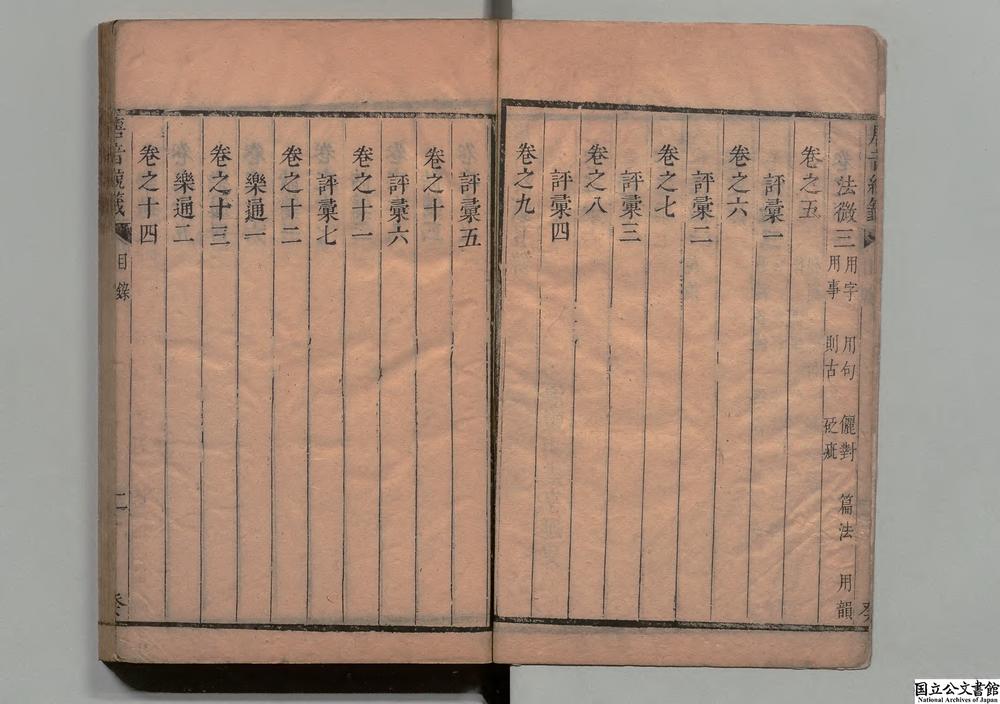 法微三
用字　用句　儷對　篇法　用韻
用事　則古　砭疵
卷之五
評彙一
卷之六
評彙二
卷之七
評彙三
卷之八
評彙四
卷之九
評彙五
卷之十
評彙六
卷之十一
評彙七
卷之十二
樂通一
卷之十三
樂通二
卷之十四
目錄
二
国立公文書館
National Archives of Japan